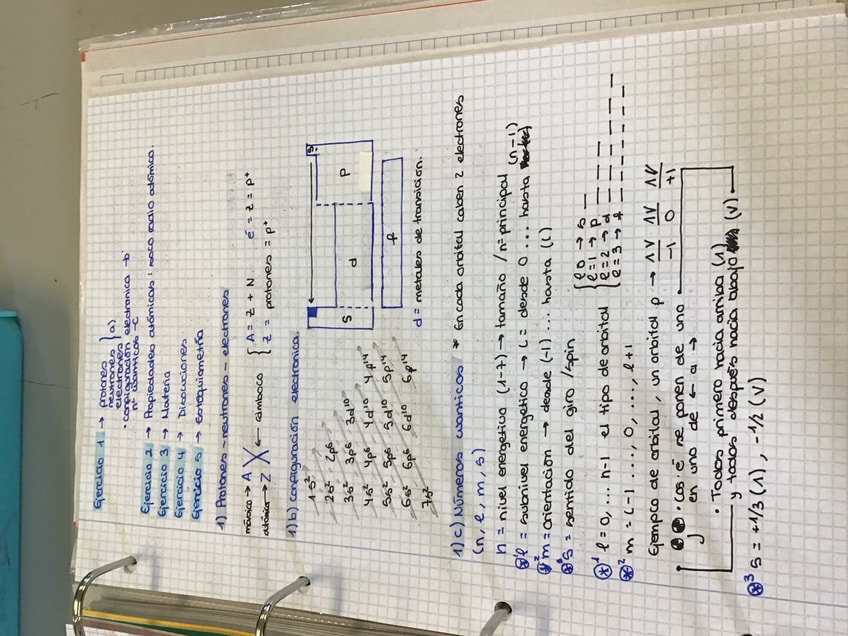 Ejercicio 1 → protones
neutrones } a)
electrones
• configuración electronica -b
nº atomicos -c
Ejercicio 2 → Propiedades atómicas: moco radio atómico.
Ejercicio 3 → Materia
Ejercicio 4 → Disoluciones
Ejercicio 5 → Estequiometría
1) Protones - neutrones - electrones
másico → A X ← símbolo { A = Z + N é = Z = p+
atómico → Z { Z = protones = p+
1) b) configuración electronica.
1s²
2s² 2p6
3s² 3p6 3d10
4s² 4p6 4d10 4f14
5s² 5p6 5d10 5f14
6s² 6p6 6d10 6f14
7s²
s d p
f
d = metales de transición.
1) c) Números cuánticos * En cada orbital caben 2 electrones
(n, l, m, s)
n = nivel energetico (1-7) → tamaño / nº principal
*1 l = subnivel energetico → l = desde 0 ... hasta (n-1)
*2 m = orientación → desde (-l) ... hasta (l)
*3 s = sentido del giro / spin
*1 l = 0, ... n-1 el tipo de orbital { l 0 → s
l = 1 → p
l = 2 → d
l = 3 → f
*2 m = (-1 ..., 0, ..., l+1
Ejemplo de orbital, un orbital p →
-1 0 +1
• Los é se ponen de uno
en uno de ← a →
• Todos primero hacia arriba (1)
y todos después hacia abajo (V)
*3 s = +1/3 (1), -1/2 (V)